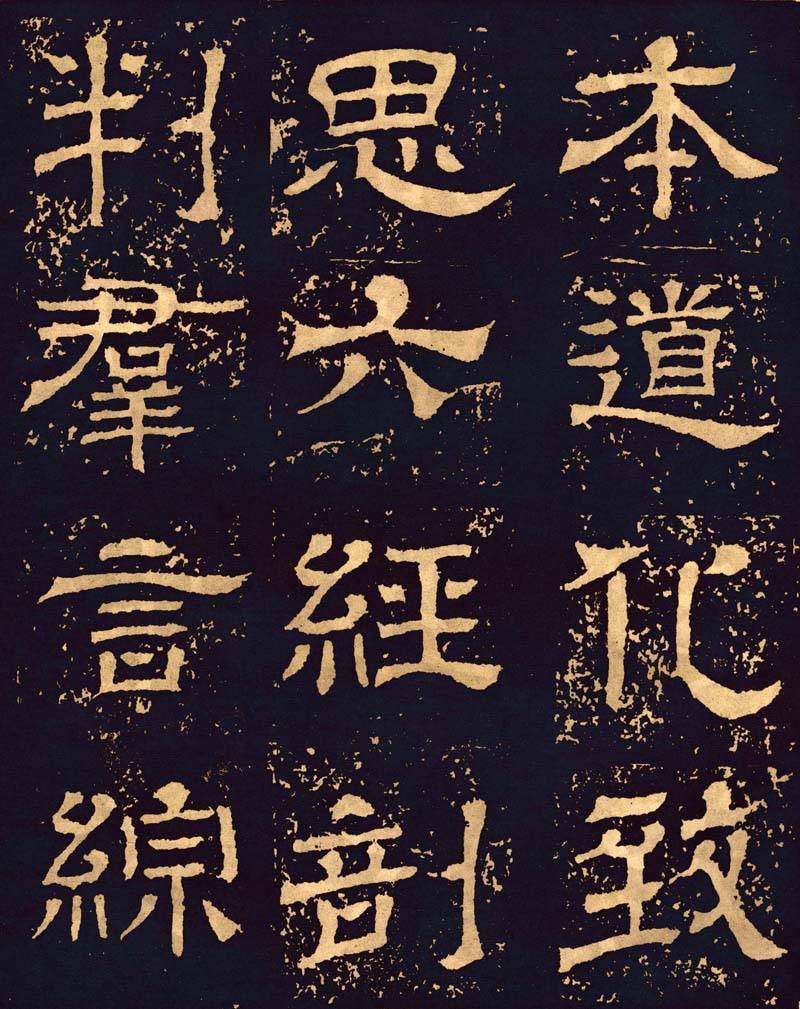 本道化致
思六經剖
判羣言綜